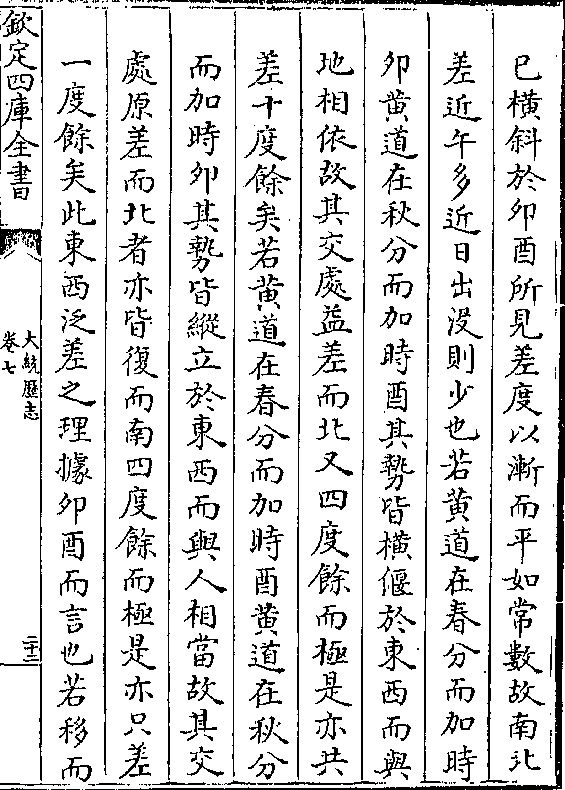 已橫斜於卯酉所見差度以漸而平如常數故南北
差近午多近日出沒則少也若黃道在春分而加時
卯黃道在秋分而加時酉其勢皆橫偃於東西而與
地相依故其交處益差而北又四度餘而極是亦共
差十度餘矣若黃道在春分而加時酉黃道在秋分
而加時卯其勢皆縱立於東西而與人相當故其交
處原差而北者亦皆復而南四度餘而極是亦只差
一度餘矣此東西泛差之理據卯酉而言也若移而
欽定四庫全書
大統歷志
卷七
二十三